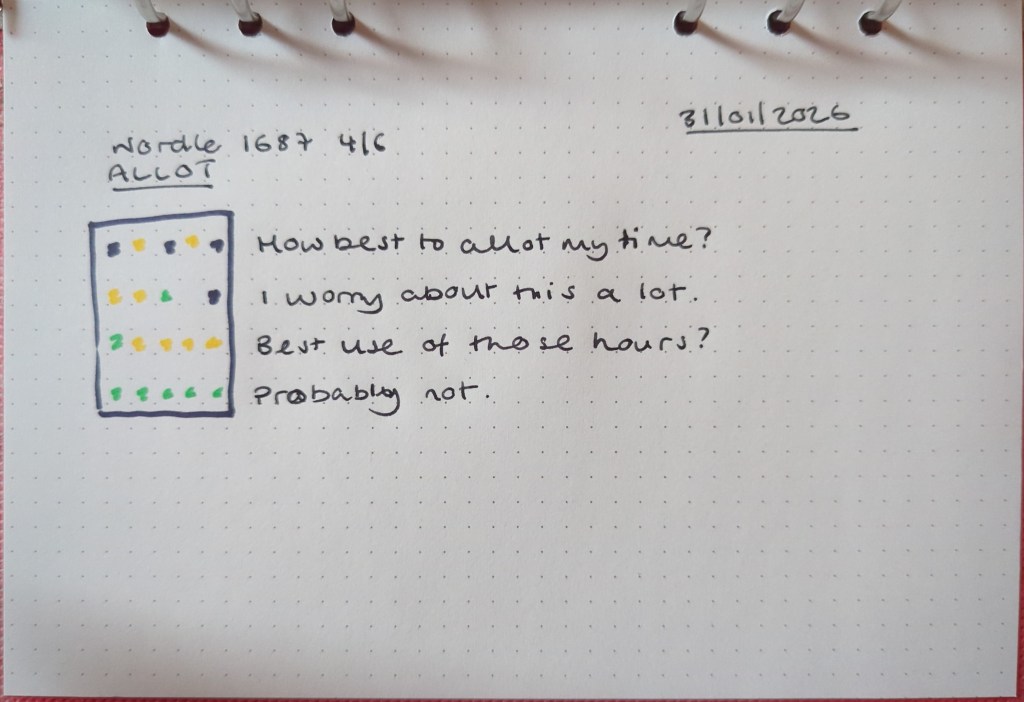 31/01/2026
Wordle 1687 4/6
ALLOT
How best to allot my time?
I worry about this a lot.
Best use of those hours?
Probably not.